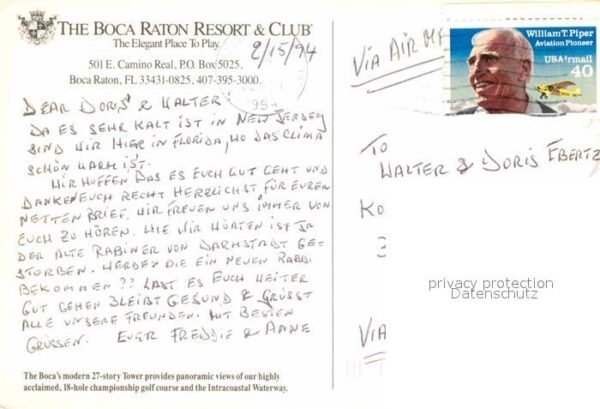 THE BOCA RATON RESORT & CLUB
The Elegant Place To Play
501 E. Camino Real, P.O. Box 5025,
Boca Raton, FL 33431-0825, 407-395-3000.
2/15/94
DEAR DORIS & WALTER
DA ES SEHR KALT IST IN NEW JERSEY
SIND WIR HIER IN FLORIDA, WO DAS CLIMA
SCHÖN WARM IST.
WIR HOFFEN DAS ES EUCH GUT GEHT UND
DANKEN EUCH RECHT HERZLICHST FÜR EUREN
NETTEN BRIEF. WIR FREUEN UNS IMMER VON
EUCH ZU HÖREN. WIE WIR HÖRTEN IST JA
DER ALTE RABINER VON DARMSTADT GE-
STORBEN. WERDEN DIE EIN NEUEN RABBI
BEKOMMEN?? LAST ES EUCH WEITER
GUT GEHEN BLEIBT GESUND & GRÜSST
ALLE UNSERE FREUNDEN. MIT BESTEN
GRÜSSEN. EUER FREDDIE & ANNE
The Boca's modern 27-story Tower provides panoramic views of our highly
acclaimed, 18-hole championship golf course and the Intracoastal Waterway.
VIA AIR MA
William T. Piper
Aviation Pioneer
USAirmail
40
TO
WALTER & DORIS EBERTZ
KO
privacy protection
Datenschutz
VIA